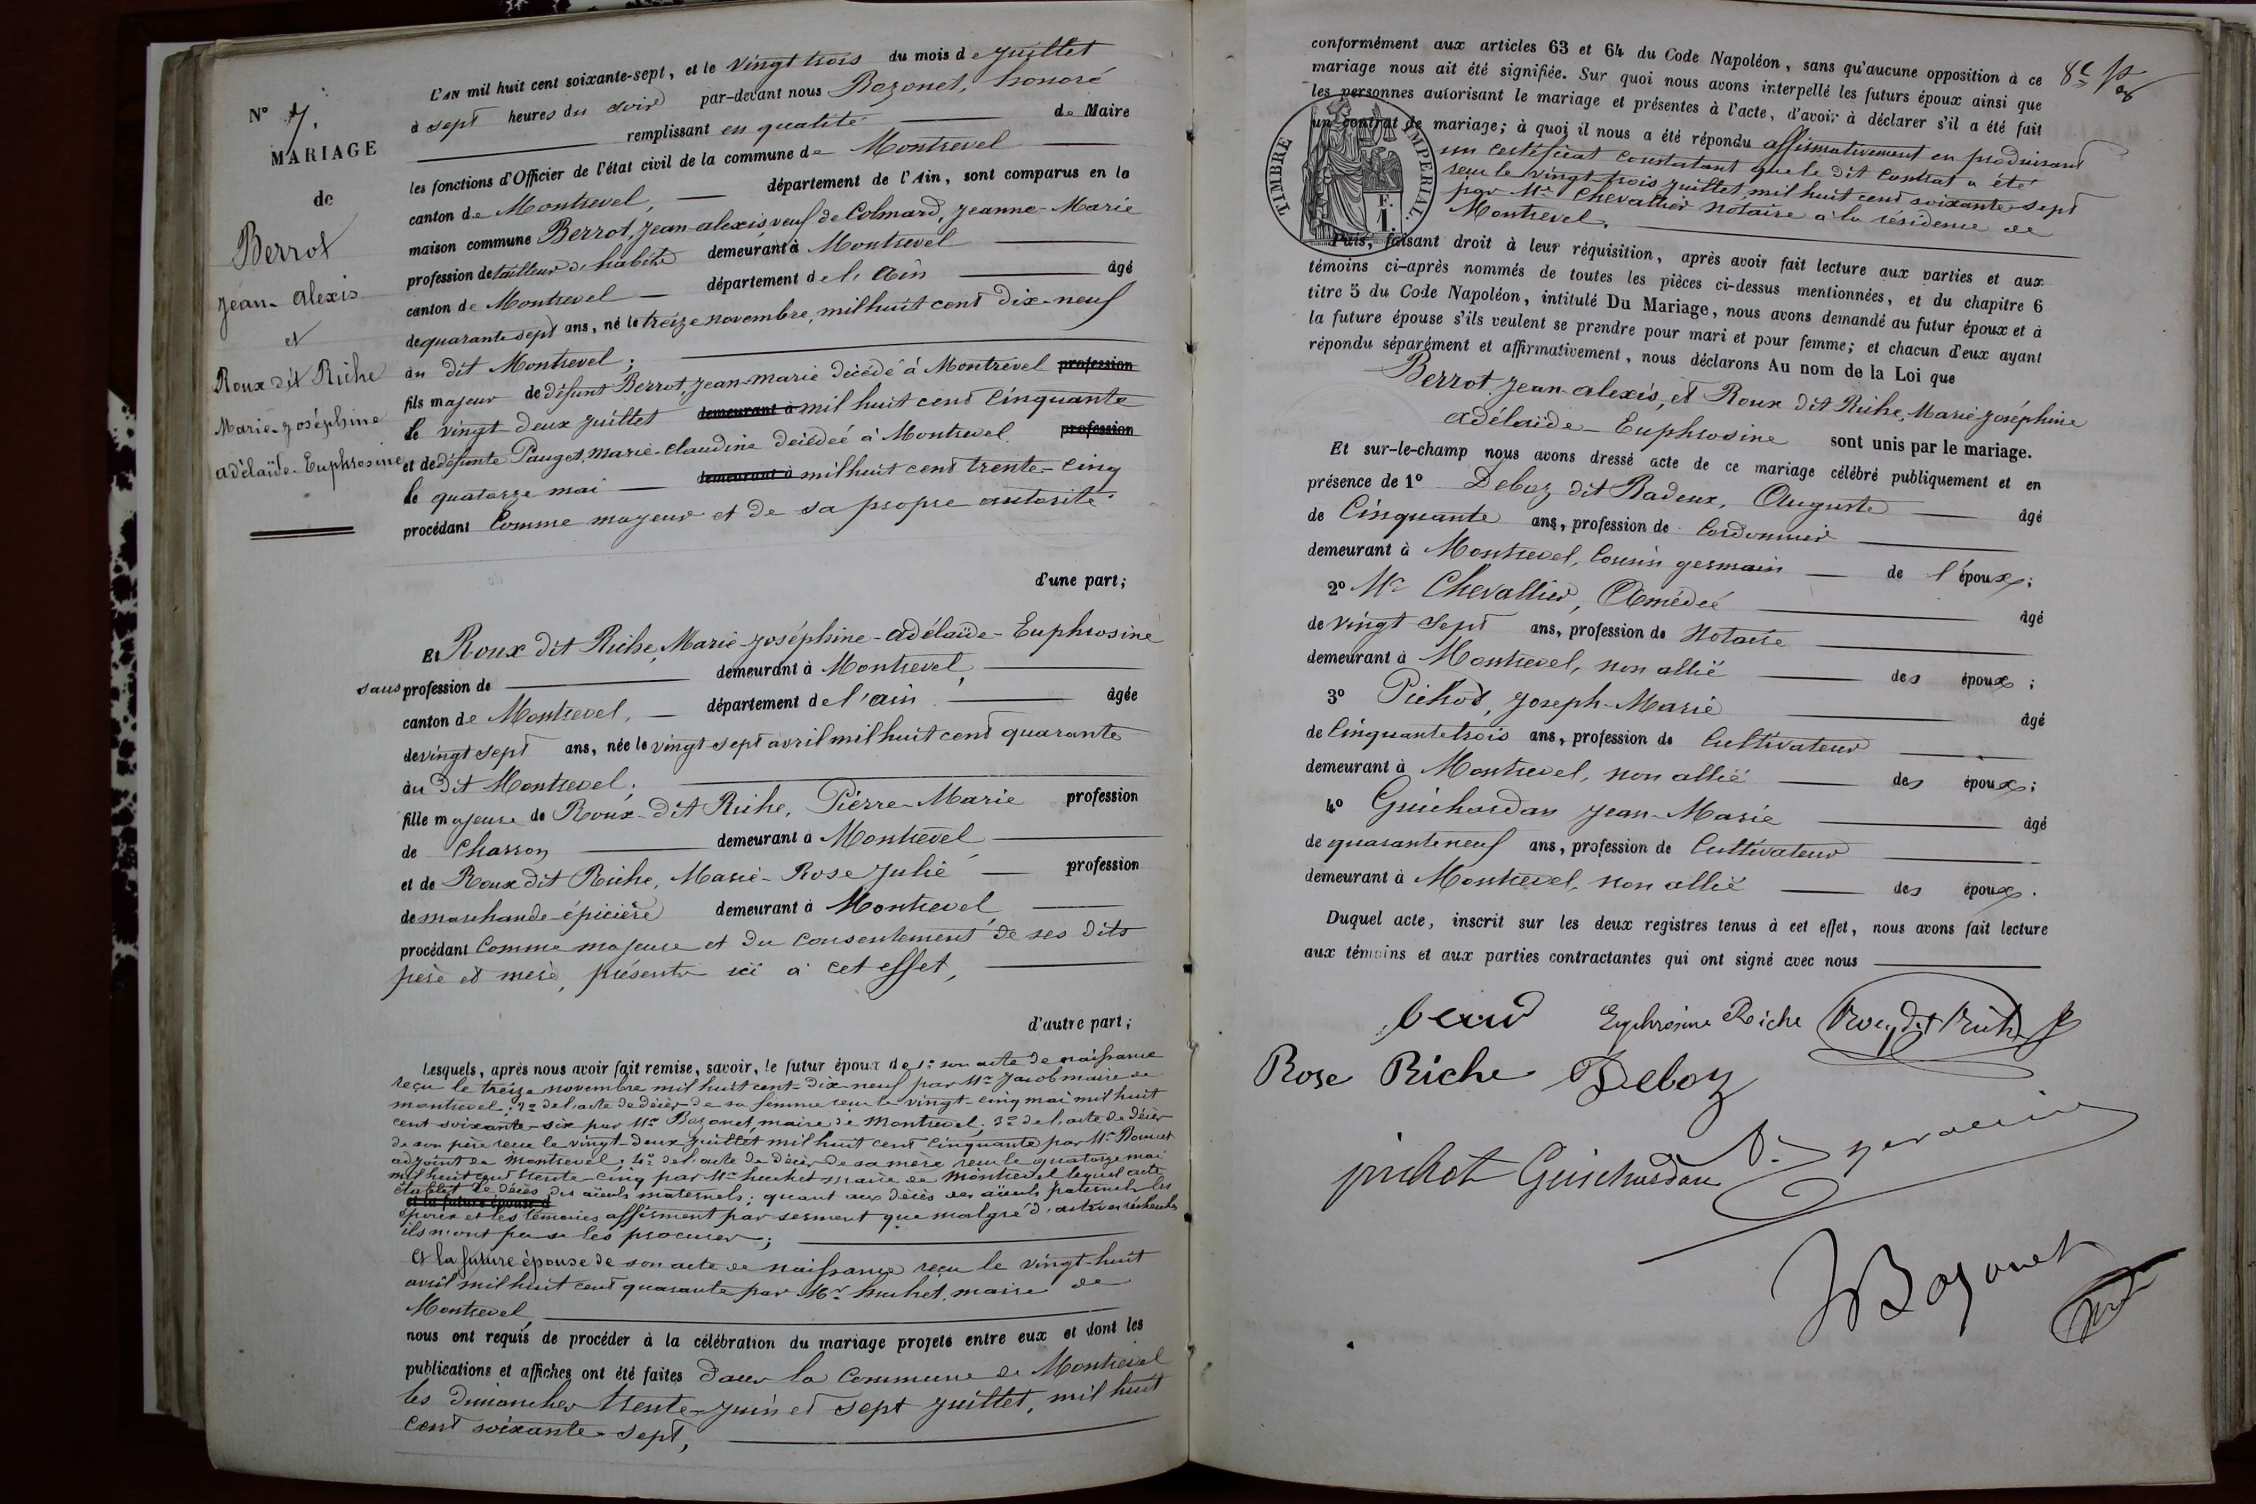 N° 7.
MARIAGE
de
Berrot
Jean-Alexis
et
Roux dit Riche
Marie-Joséphine
Adélaïde-Euphrosine
L'AN mil huit cent soixante-sept, et le vingt trois du mois de juillet
à sept heures du soir par-devant nous Bozonet, honoré
remplissant en qualité de Maire
les fonctions d'Officier de l'état civil de la commune de Montrevel
canton de Montrevel, département de l'Ain, sont comparus en la
maison commune Berrot, Jean-alexis, veuf de Colmard, Jeanne-Marie
profession de tailleur d'habits demeurant à Montrevel
canton de Montrevel département de l'Ain âgé
de quarante sept ans, né le treize novembre, mil huit cent dix-neuf
au dit Montrevel;
fils majeur de défunt Berrot, Jean-Marie décédé à Montrevel profession
le vingt-deux juillet demeurant à mil huit cent cinquante
et de défunte Pauget, Marie-Claudine décédée à Montrevel profession
le quatorze mai demeurant à mil huit cent trente-cinq
procédant comme majeur et de sa propre autorité.
d'une part;
Et Roux dit Riche, Marie-Joséphine-Adélaïde-Euphrosine
sans profession de demeurant à Montrevel,
canton de Montrevel, département de l'ain âgée
de vingt sept ans, née le vingt-sept avril mil huit cent quarante
au dit Montrevel;
fille majeure de Roux-dit Riche, Pierre-Marie profession
de Charron demeurant à Montrevel
et de Roux dit Riche, Marie-Rose Julie profession
de marchande-épicière demeurant à Montrevel
procédant comme majeure et du consentement de ses dits
père et mère, présents ici à cet effet,
d'autre part;
Lesquels, après nous avoir fait remise, savoir, le futur époux de 1° son acte de naissance
reçu le treize novembre mil huit cent-dix-neuf par Mr Jacob maire de
montrevel; 2° de l'acte de décès de sa femme reçu le vingt-cinq mai mil huit
cent soixante-six par Mr Bozonet, maire de Montrevel; 3° de l'acte de décès
de son père reçu le vingt-deux juillet mil huit cent cinquante par Mr
adjoint de Montrevel; 4° de l'acte de décès de sa mère reçu le quatorze mai
mil huit cent trente-cinq par Mr huchet maire de Montrevel lequel acte
établit le décès des aïeuls maternels; quant aux décès des aïeuls paternels les
et la future épouse d
époux et les témoins affirment par serment que malgré d'actives recherches
ils n'ont pu se les procurer;
Et la future épouse de son acte de naissance reçu le vingt-huit
avril mil huit cent quarante par Mr huchet, maire de
Montrevel,
nous ont requis de procéder à la célébration du mariage projeté entre eux et dont les
publications et affiches ont été faites dans la Commune de Montrevel
les dimanches trente-juin et sept juillet, mil huit
cent soixante-sept,
conformément aux articles 63 et 64 du Code Napoléon, sans qu'aucune opposition à ce
mariage nous ait été signifiée. Sur quoi nous avons interpellé les futurs époux ainsi que
les personnes autorisant le mariage et présentes à l'acte, d'avoir à déclarer s'il a été fait
un contrat de mariage; à quoi il nous a été répondu affirmativement en produisant
un certificat constatant que le dit contrat a été
reçu le vingt-trois juillet mil huit cent soixante-sept
par Mr Chevallier notaire à la résidence de
Montrevel.
TIMBRE IMPERIAL.
F.
1.
Puis, faisant droit à leur réquisition, après avoir fait lecture aux parties et aux
témoins ci-après nommés de toutes les pièces ci-dessus mentionnées, et du chapitre 6
titre 5 du Code Napoléon, intitulé Du Mariage, nous avons demandé au futur époux et à
la future épouse s'ils veulent se prendre pour mari et pour femme; et chacun d'eux ayant
répondu séparément et affirmativement, nous déclarons Au nom de la Loi que
Berrot, Jean-alexis, et Roux dit Riche, Marie-Joséphine
adélaïde-Euphrosine sont unis par le mariage.
Et sur-le-champ nous avons dressé acte de ce mariage célébré publiquement et en
présence de 1° Deboz dit Badoux, Auguste âgé
de Cinquante ans, profession de Cordonnier
demeurant à Montrevel, Cousin germain de l'époux;
2° Mr Chevallier, Amédée âgé
de vingt sept ans, profession de Notaire
demeurant à Montrevel, non allié des époux;
3° Pichod, Joseph-Marie âgé
de cinquante trois ans, profession de Cultivateur
demeurant à Montrevel, non allié des époux;
4° Guichardan Jean-Marie âgé
de quarante neuf ans, profession de Cultivateur
demeurant à Montrevel, non allié des époux.
Duquel acte, inscrit sur les deux registres tenus à cet effet, nous avons fait lecture
aux témoins et aux parties contractantes qui ont signé avec nous
Euphrosine Riche Roux dit Riche
Rose Riche Deboz
pichot Guichardan
Bozonet